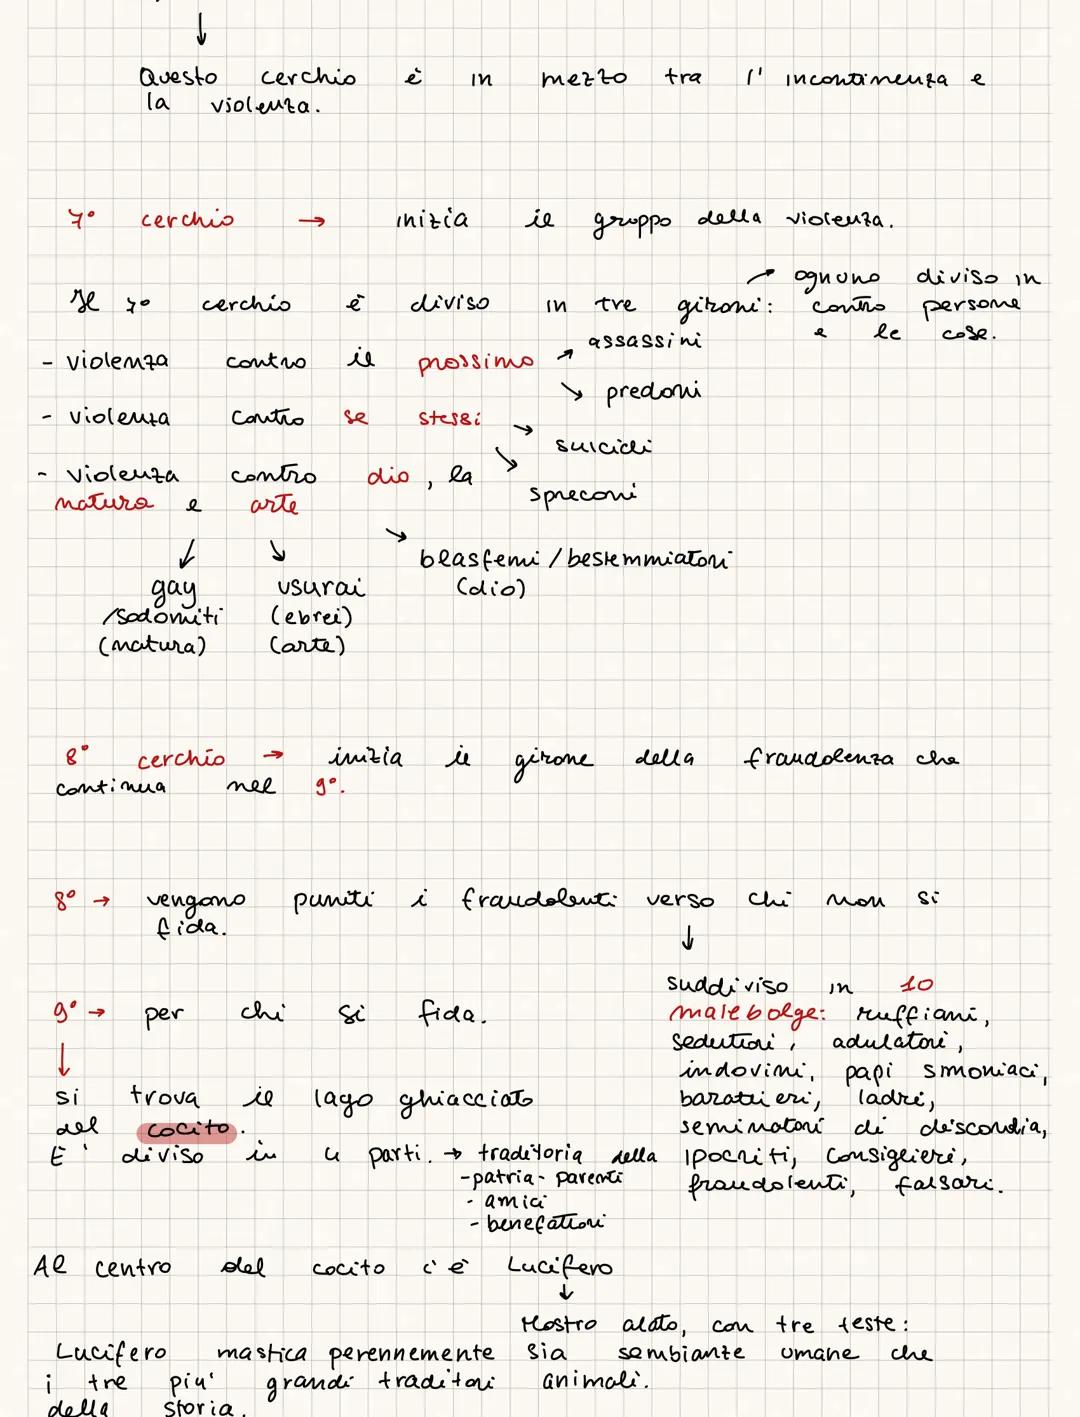 Questo cerchio è in mezzo tra l'incontinenza e
la violenza.
7° cerchio → inizia il gruppo della violenza.
Il 7° cerchio è diviso in tre gironi:
→ ognuno diviso in
contro persone
e le cose.
- violenza contro il prossimo
assassini
predoni
- violenza contro se stessi
suicidi
spreconi
- violenza contro dio, la
natura e arte
blasfemi/bestemmiatori
(dio)
gay
/sodomiti
(natura)
usurai
(ebrei)
(arte)
8° cerchio → inizia il girone della fraudolenza che
continua nel 9°.
8° → vengono puniti i fraudolenti verso chi non si
fida.
suddiviso in 10
malebolge: ruffiani,
seduttori, adulatori,
indovini, papi simoniaci,
barattieri, ladri,
seminatori di discordia,
ipocriti, consiglieri,
fraudolenti, falsari.
9° → per chi si fida.
si trova il lago ghiacciato
del cocito.
E' diviso in 4 parti. → traditoria della
-patria- parenti
- amici
- benefattori
Al centro del cocito c'è Lucifero
Mostro alato, con tre teste:
sia sembianze umane che
animali.
Lucifero mastica perennemente
i tre piu' grandi traditori
della storia.